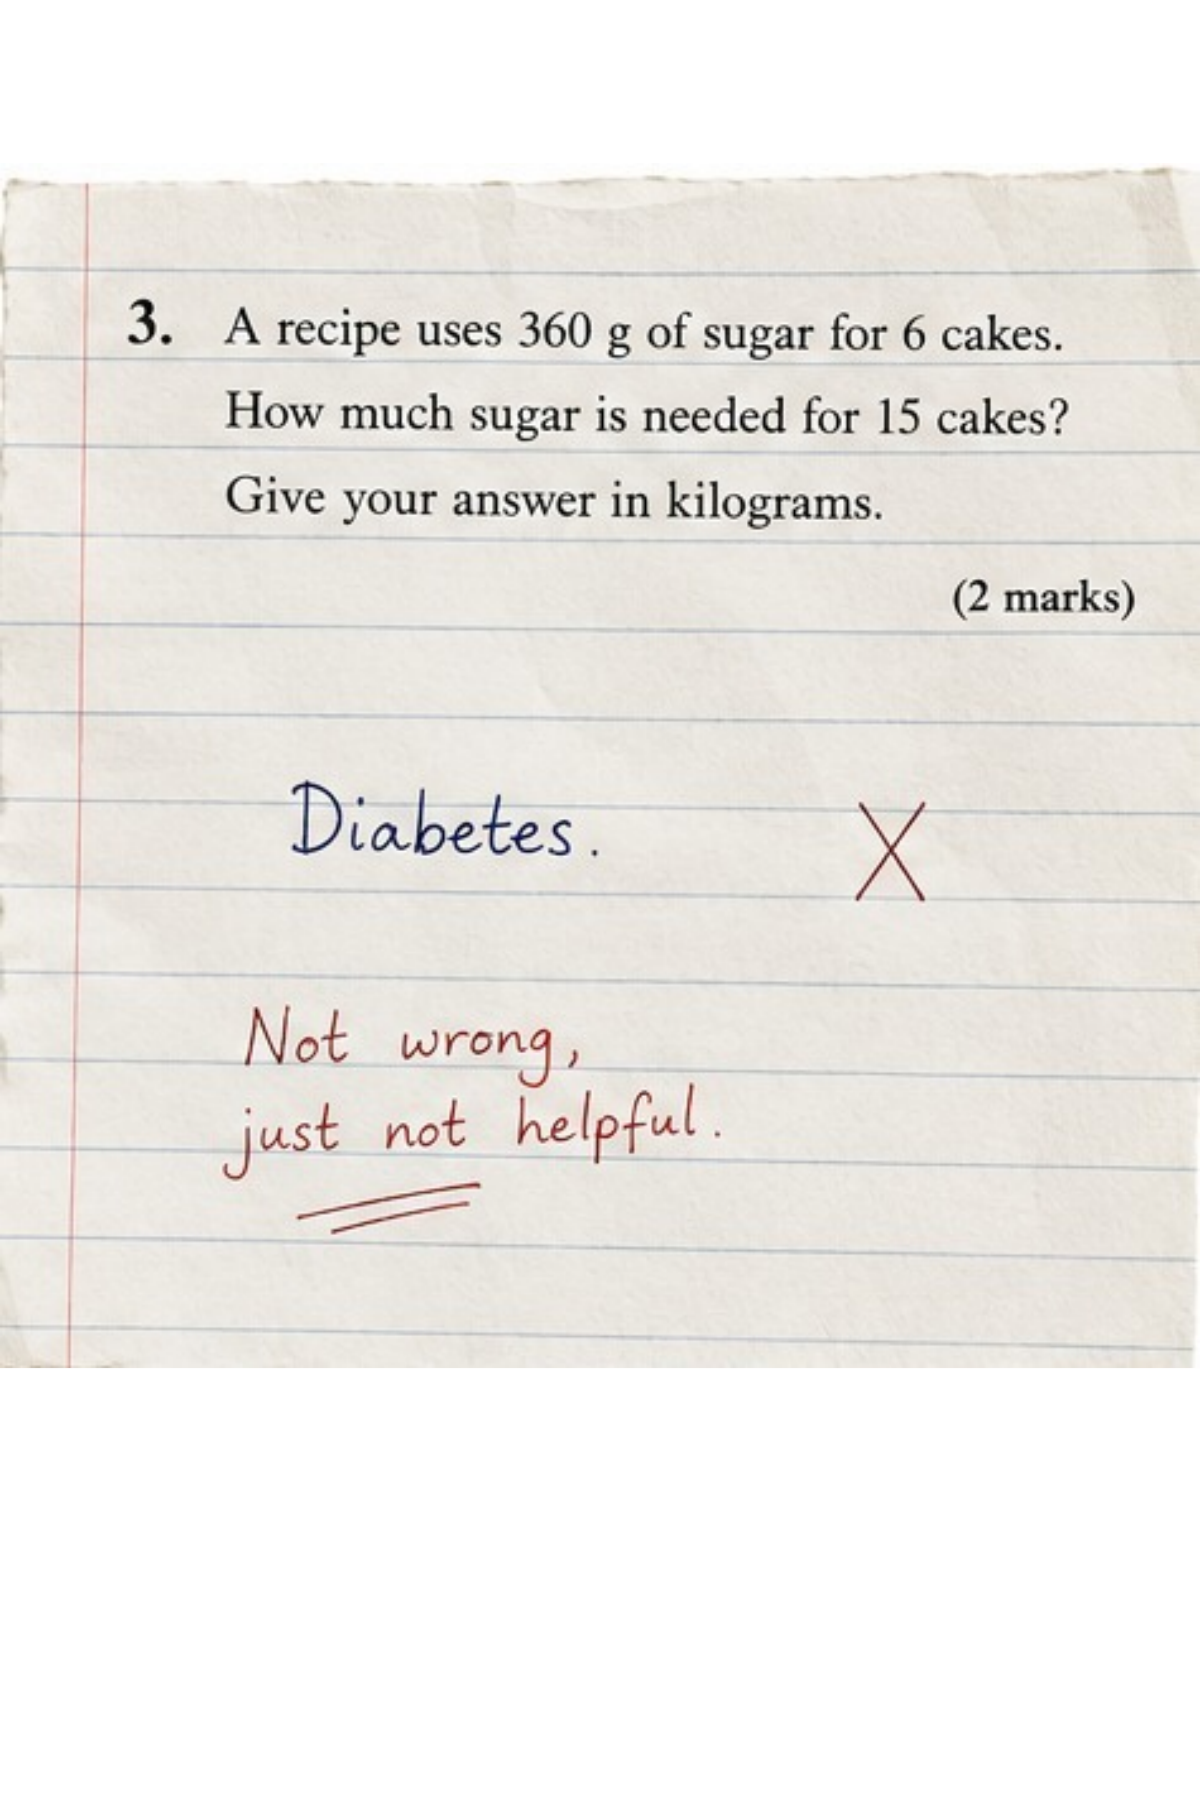 3. A recipe uses 360 g of sugar for 6 cakes.
How much sugar is needed for 15 cakes?
Give your answer in kilograms.
(2 marks)
Diabetes. X
Not wrong,
just not helpful.